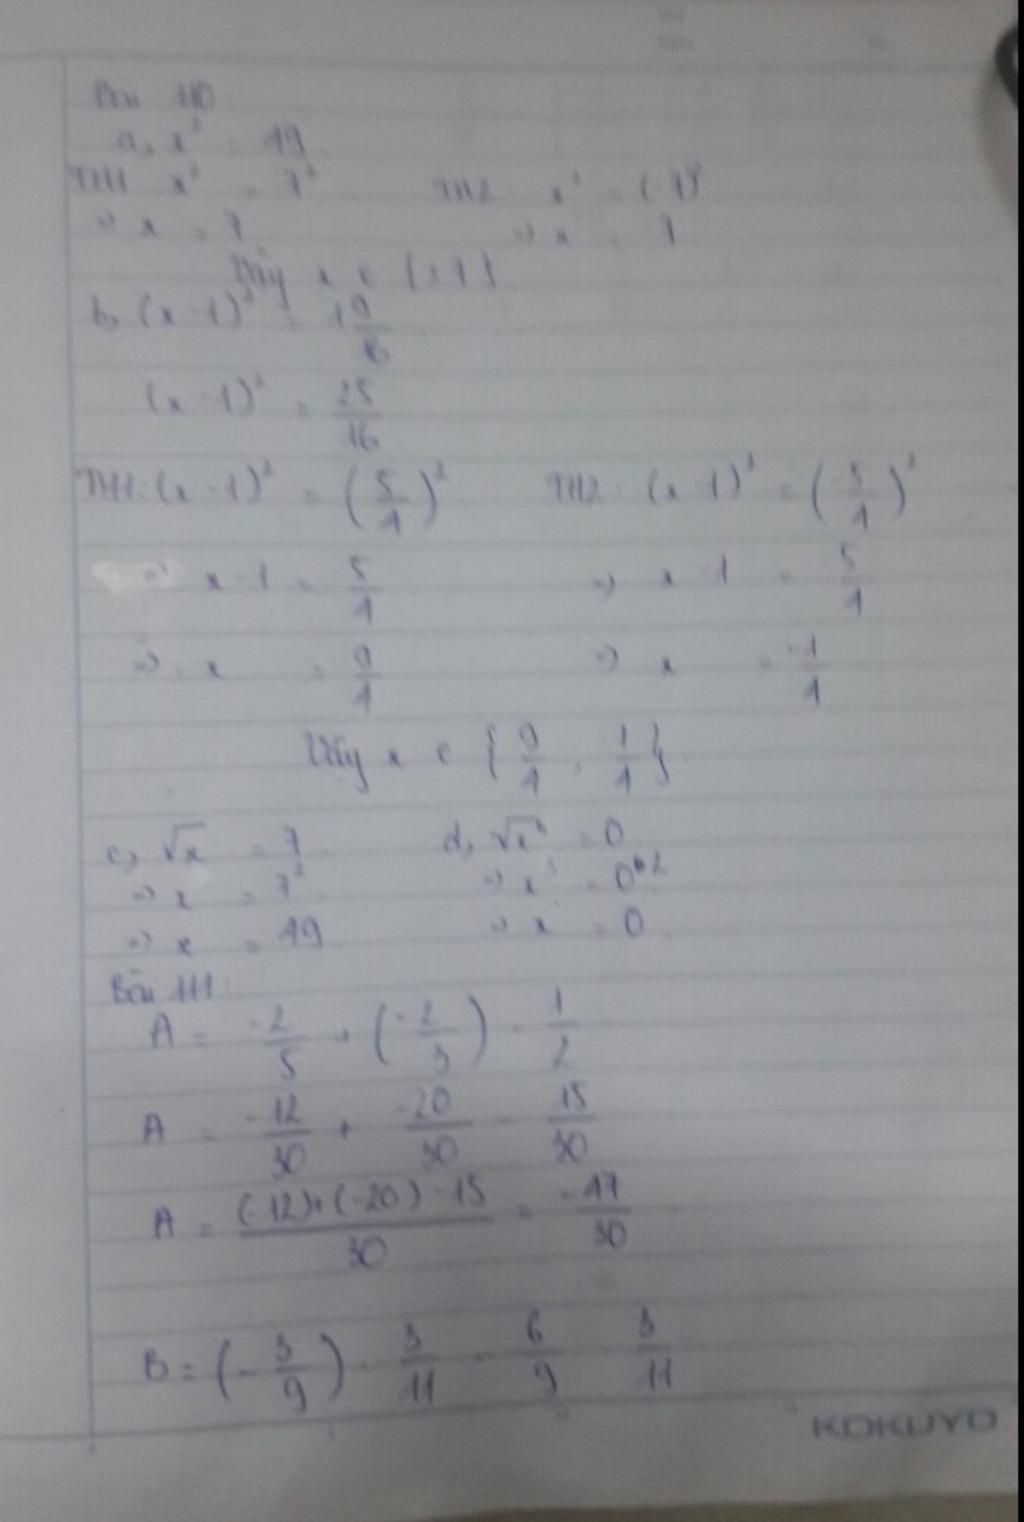 Bài 110
a, x² = 49
TH1 x² = 7² TH2: x² = (-7)²
=> x = 7 => x = -7
Vậy x ∈ {±7}
b, (x-1)² = 1 9/16
(x-1)² = 25/16
TH1: (x-1)² = (5/4)² TH2: (x-1)² = (-5/4)²
=> x-1 = 5/4 => x-1 = -5/4
=> x = 9/4 => x = -1/4
Vậy x ∈ {9/4; -1/4}
c, √x = 7 d, √x² = 0
=> x = 7² => x² = 0²
=> x = 49 => x = 0
Bài 111:
A = -2/5 + (-2/3) - 1/2
A = -12/30 + -20/30 - 15/30
A = (-12)+(-20)-15/30 = -47/30
B = (-3/9) · 3/11 - 6/9 · 3/11
KOKUYO